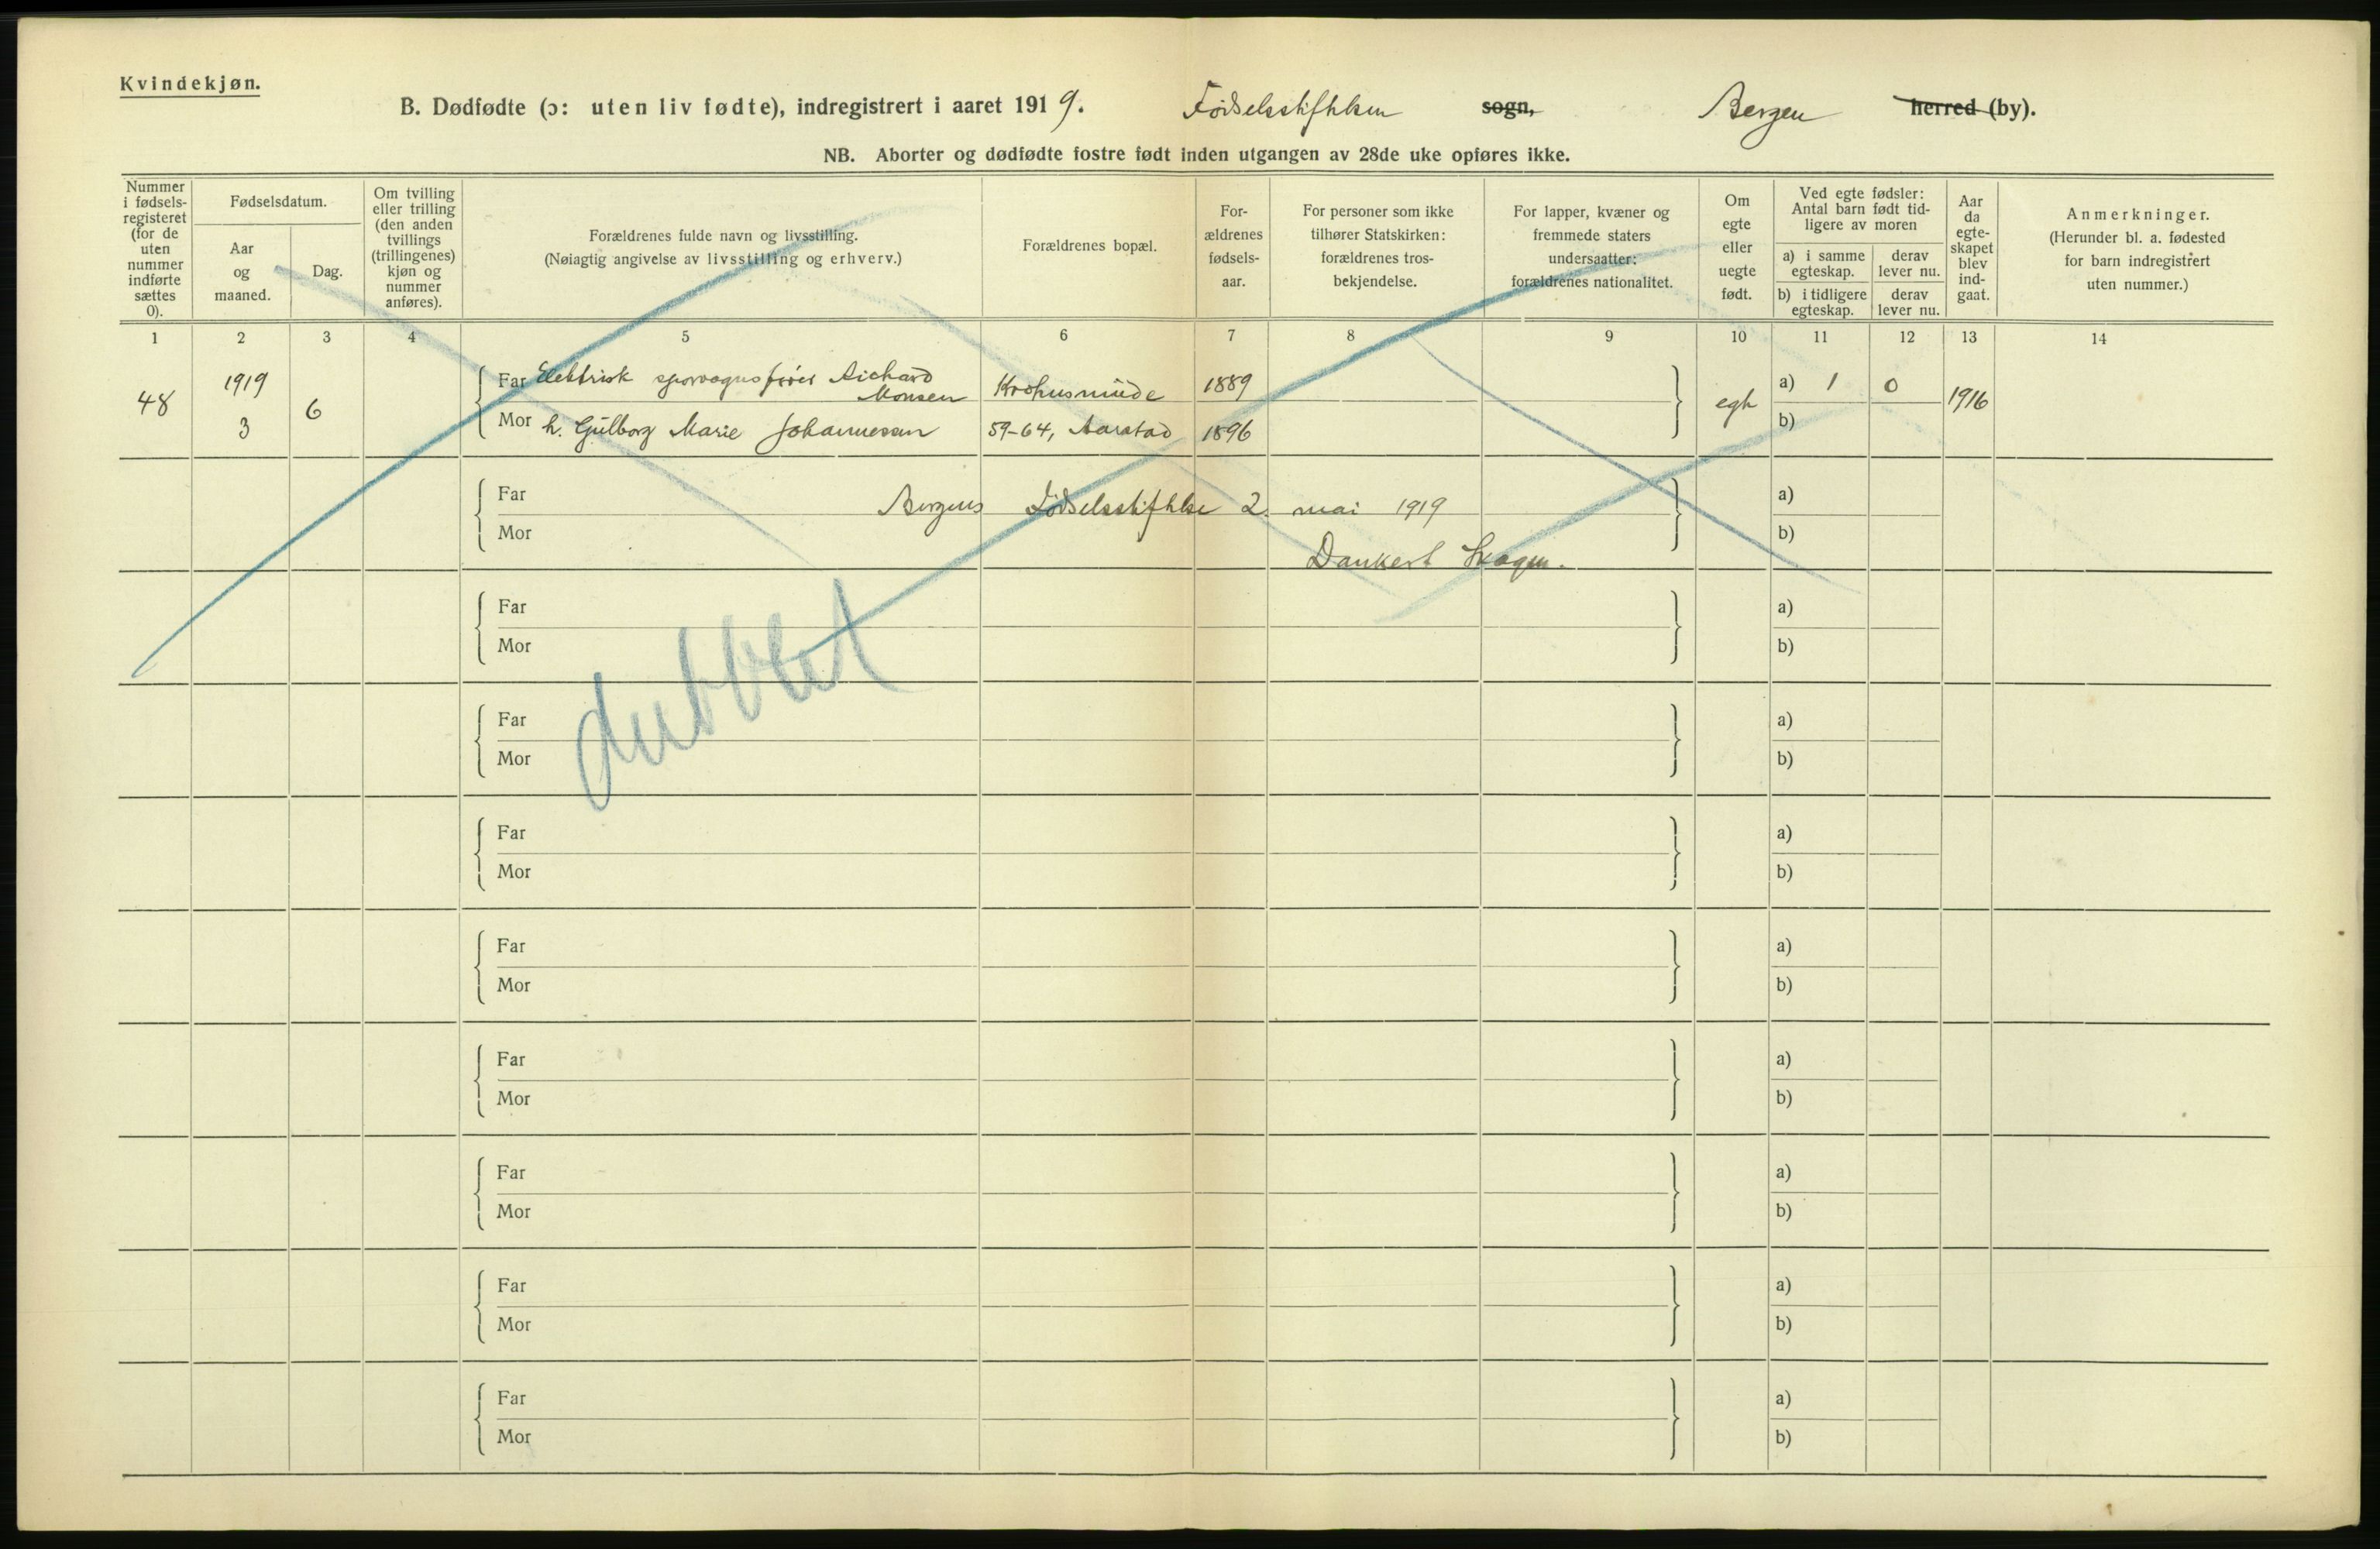 Kvindekjøn.
B. Dødfødte (ɔ: uten liv fødte), indregistrert i aaret 1919. Fødselsstiftelsen sogn, Bergen herred (by).
NB. Aborter og dødfødte fostre født inden utgangen av 28de uke opføres ikke.
Nummer i fødsels-registeret (for de uten nummer indførte sættes 0).
Fødselsdatum.
Aar og maaned.
Dag.
Om tvilling eller trilling (den anden tvillings (trillingenes) kjøn og nummer anføres).
Forældrenes fulde navn og livsstilling.
(Nøiagtig angivelse av livsstilling og erhverv.)
Forældrenes bopæl.
For-ældrenes fødsels-aar.
For personer som ikke tilhører Statskirken: forældrenes tros-bekjendelse.
For lapper, kvæner og fremmede staters undersaatter: forældrenes nationalitet.
Om egte eller uegte født.
Ved egte fødsler: Antal barn født tid-ligere av moren
a) i samme egteskap.
derav lever nu.
b) i tidligere egteskap.
derav lever nu.
Aar da egte-skapet blev ind-gaat.
Anmerkninger.
(Herunder bl. a. fødested for barn indregistrert uten nummer.)
1 2 3 4 5 6 7 8 9 10 11 12 13 14
48 1919 3 6
Far Elektrisk sporvognsfører Richard Monsen Krohnsminde 1889 a) 1 0
Mor h. Gulborg Marie Johannessen 59-64, Aarstad 1896 egte b) 1916
Far Bergens Fødselsstiftelse 2. mai 1919 a)
Mor Dankert Skagen. b)
Far a)
Mor b)
dubblet
Far a)
Mor b)
Far a)
Mor b)
Far a)
Mor b)
Far a)
Mor b)
Far a)
Mor b)
Far a)
Mor b)
Far a)
Mor b)